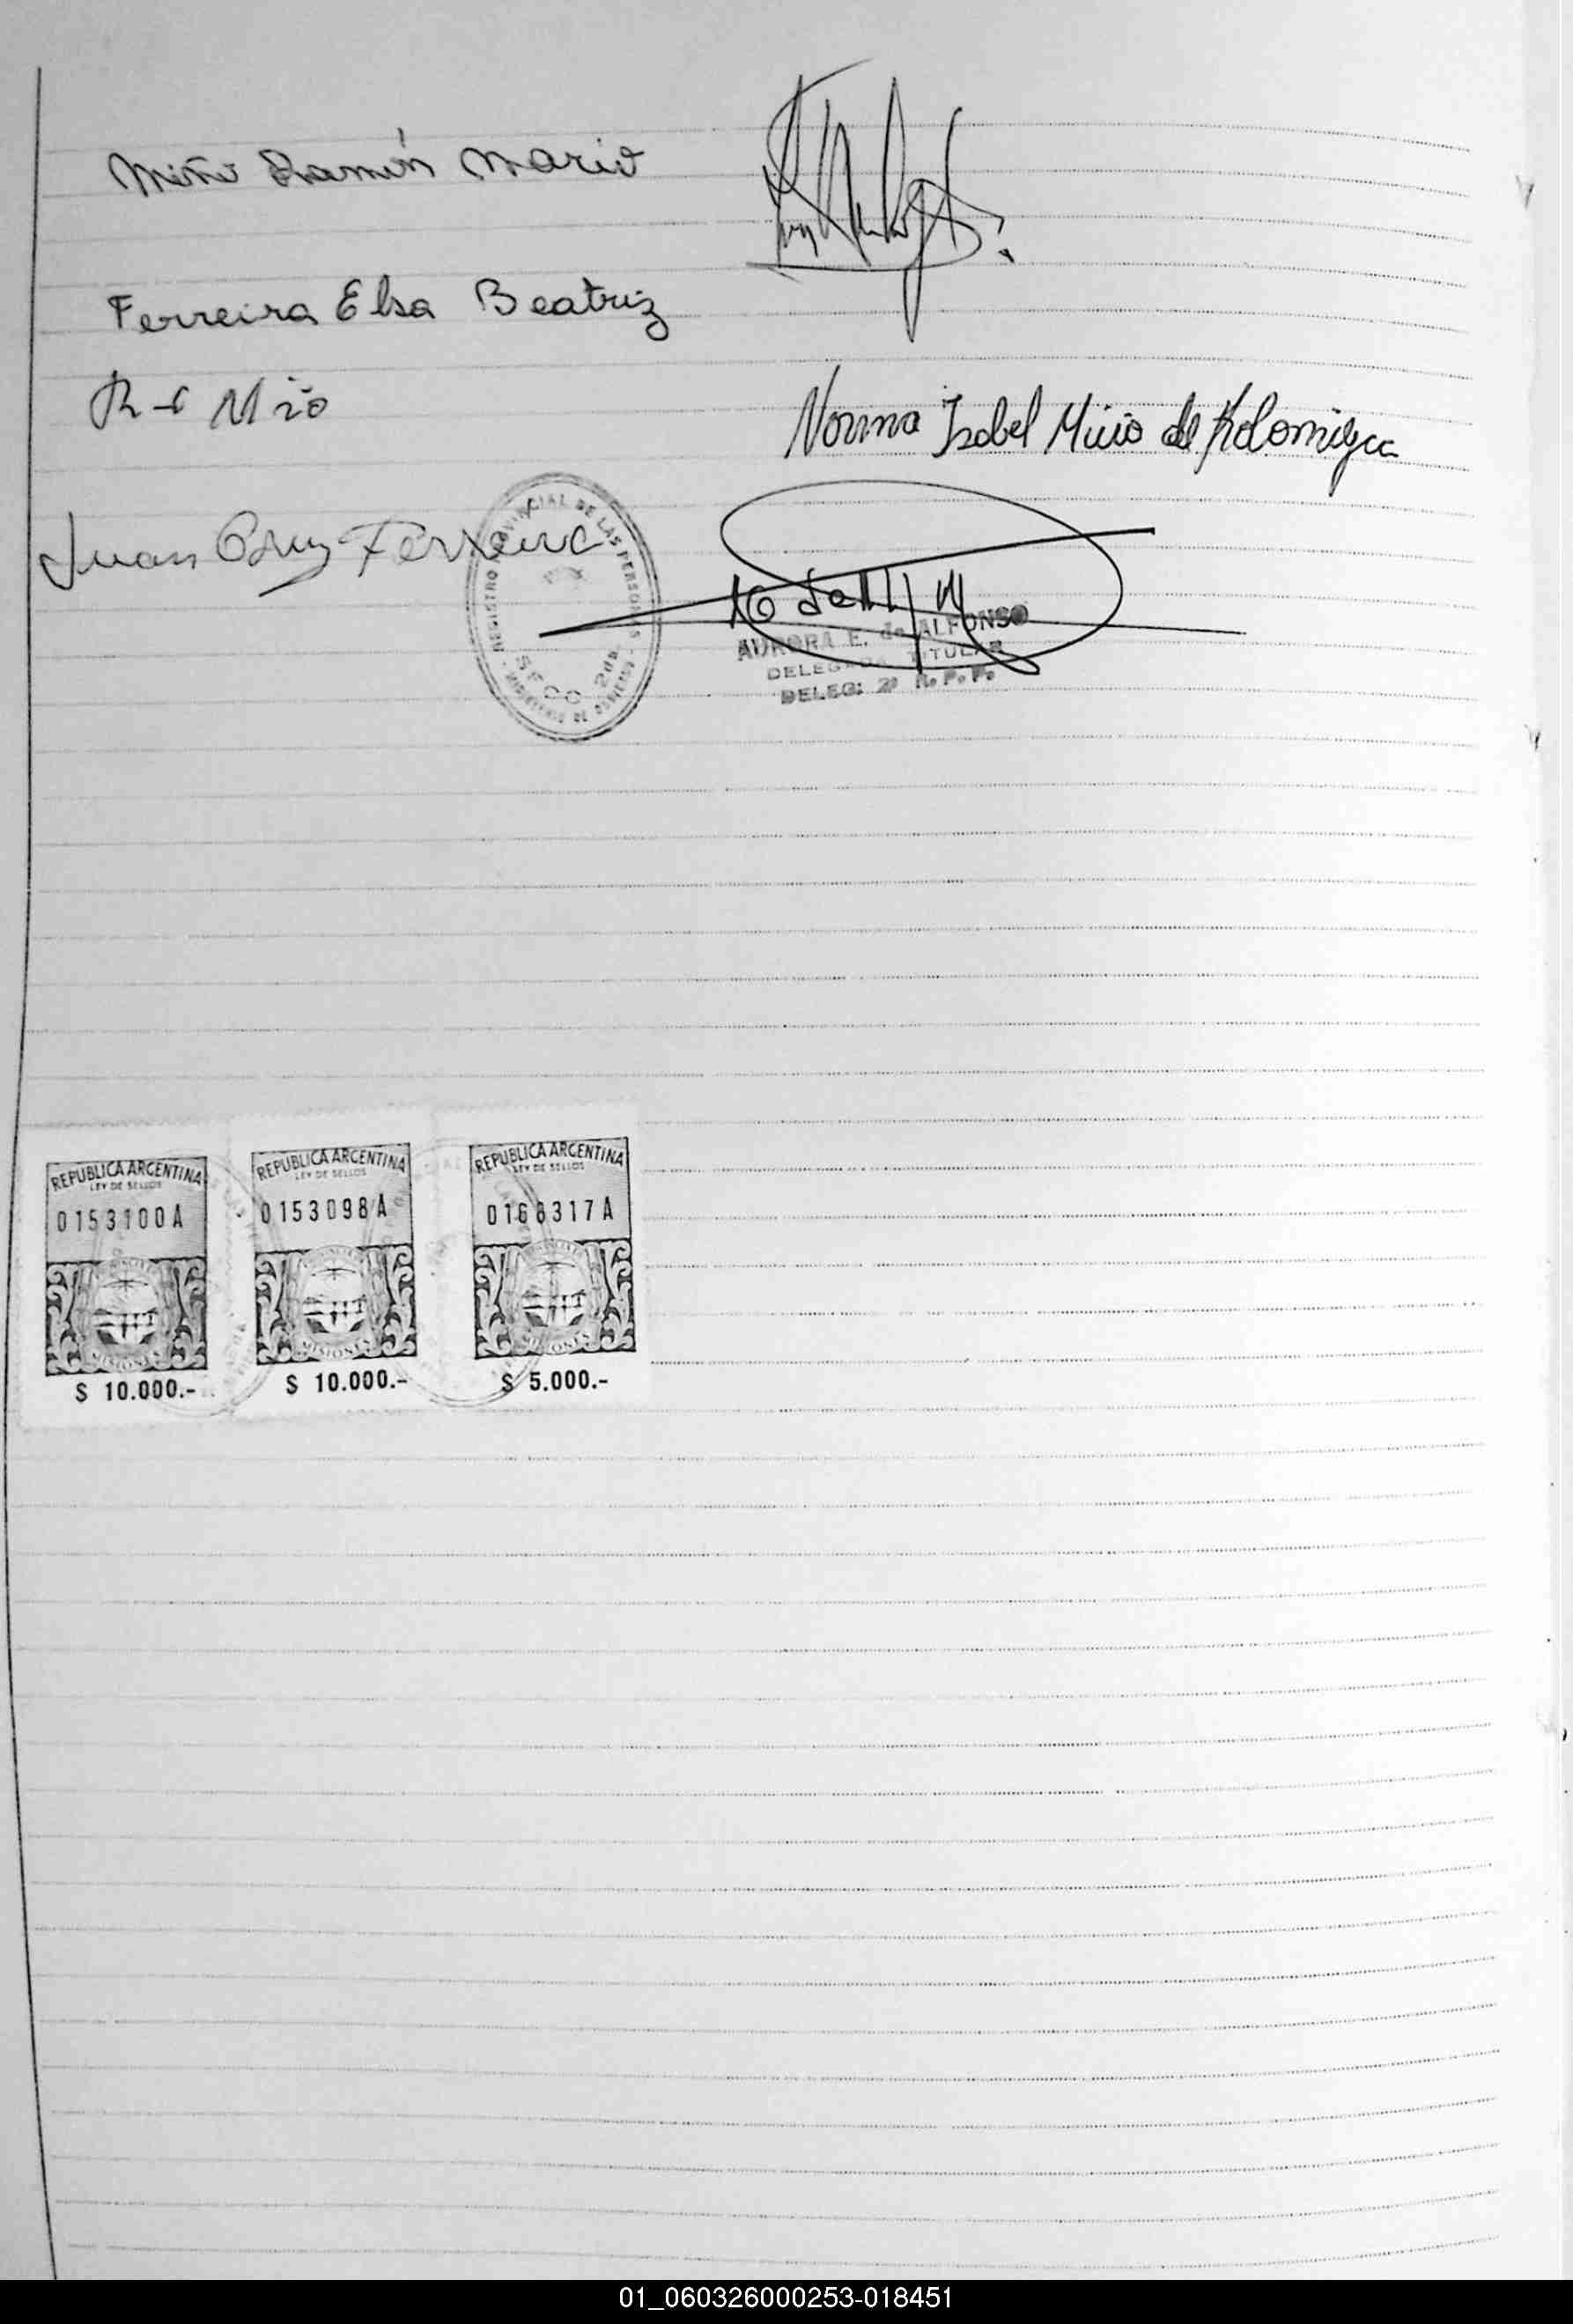 Miño Ramón Mario
Ferreira Elsa Beatriz
Miño
Norma Isabel Miño de Kolomiyec
Juan Cruz Ferreira
REGISTRO PROVINCIAL DE LAS PERSONAS
SECC 2da.
MINISTERIO DE GOBIERNO
AURORA E. de ALFONSO
DELEGADA TITULAR
DELEG: 2ª R. P. P.
REPUBLICA ARGENTINA
LEY DE SELLOS
0153100A
MISIONES
$ 10.000.-
REPUBLICA ARGENTINA
LEY DE SELLOS
0153098A
MISIONES
$ 10.000.-
REPUBLICA ARGENTINA
LEY DE SELLOS
0168317A
MISIONES
$ 5.000.-
01_060326000253-018451